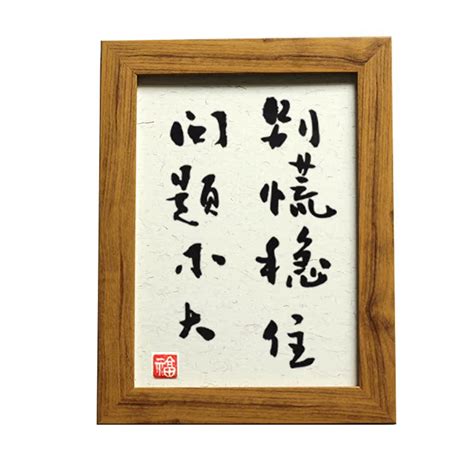 别慌稳住
问题不大
福